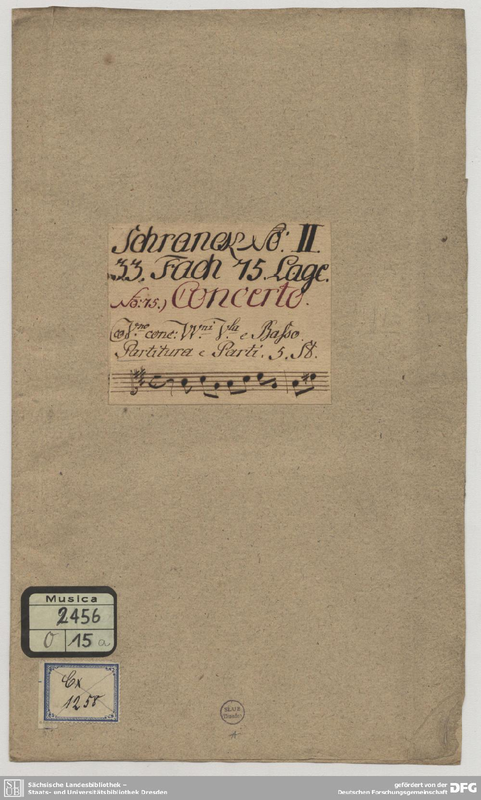 Schranck No: II.
33. Fach 15. Lage.
No: 15.) Concerto.
co V.no conc: VV.ni V.la e Basso.
Partitura e Parti. 5. St.
Musica
2456
O 15 a
Cx
1258
SLUB
Sächsische Landesbibliothek –
Staats- und Universitätsbibliothek Dresden
gefördert von der
Deutschen Forschungsgemeinschaft
DFG